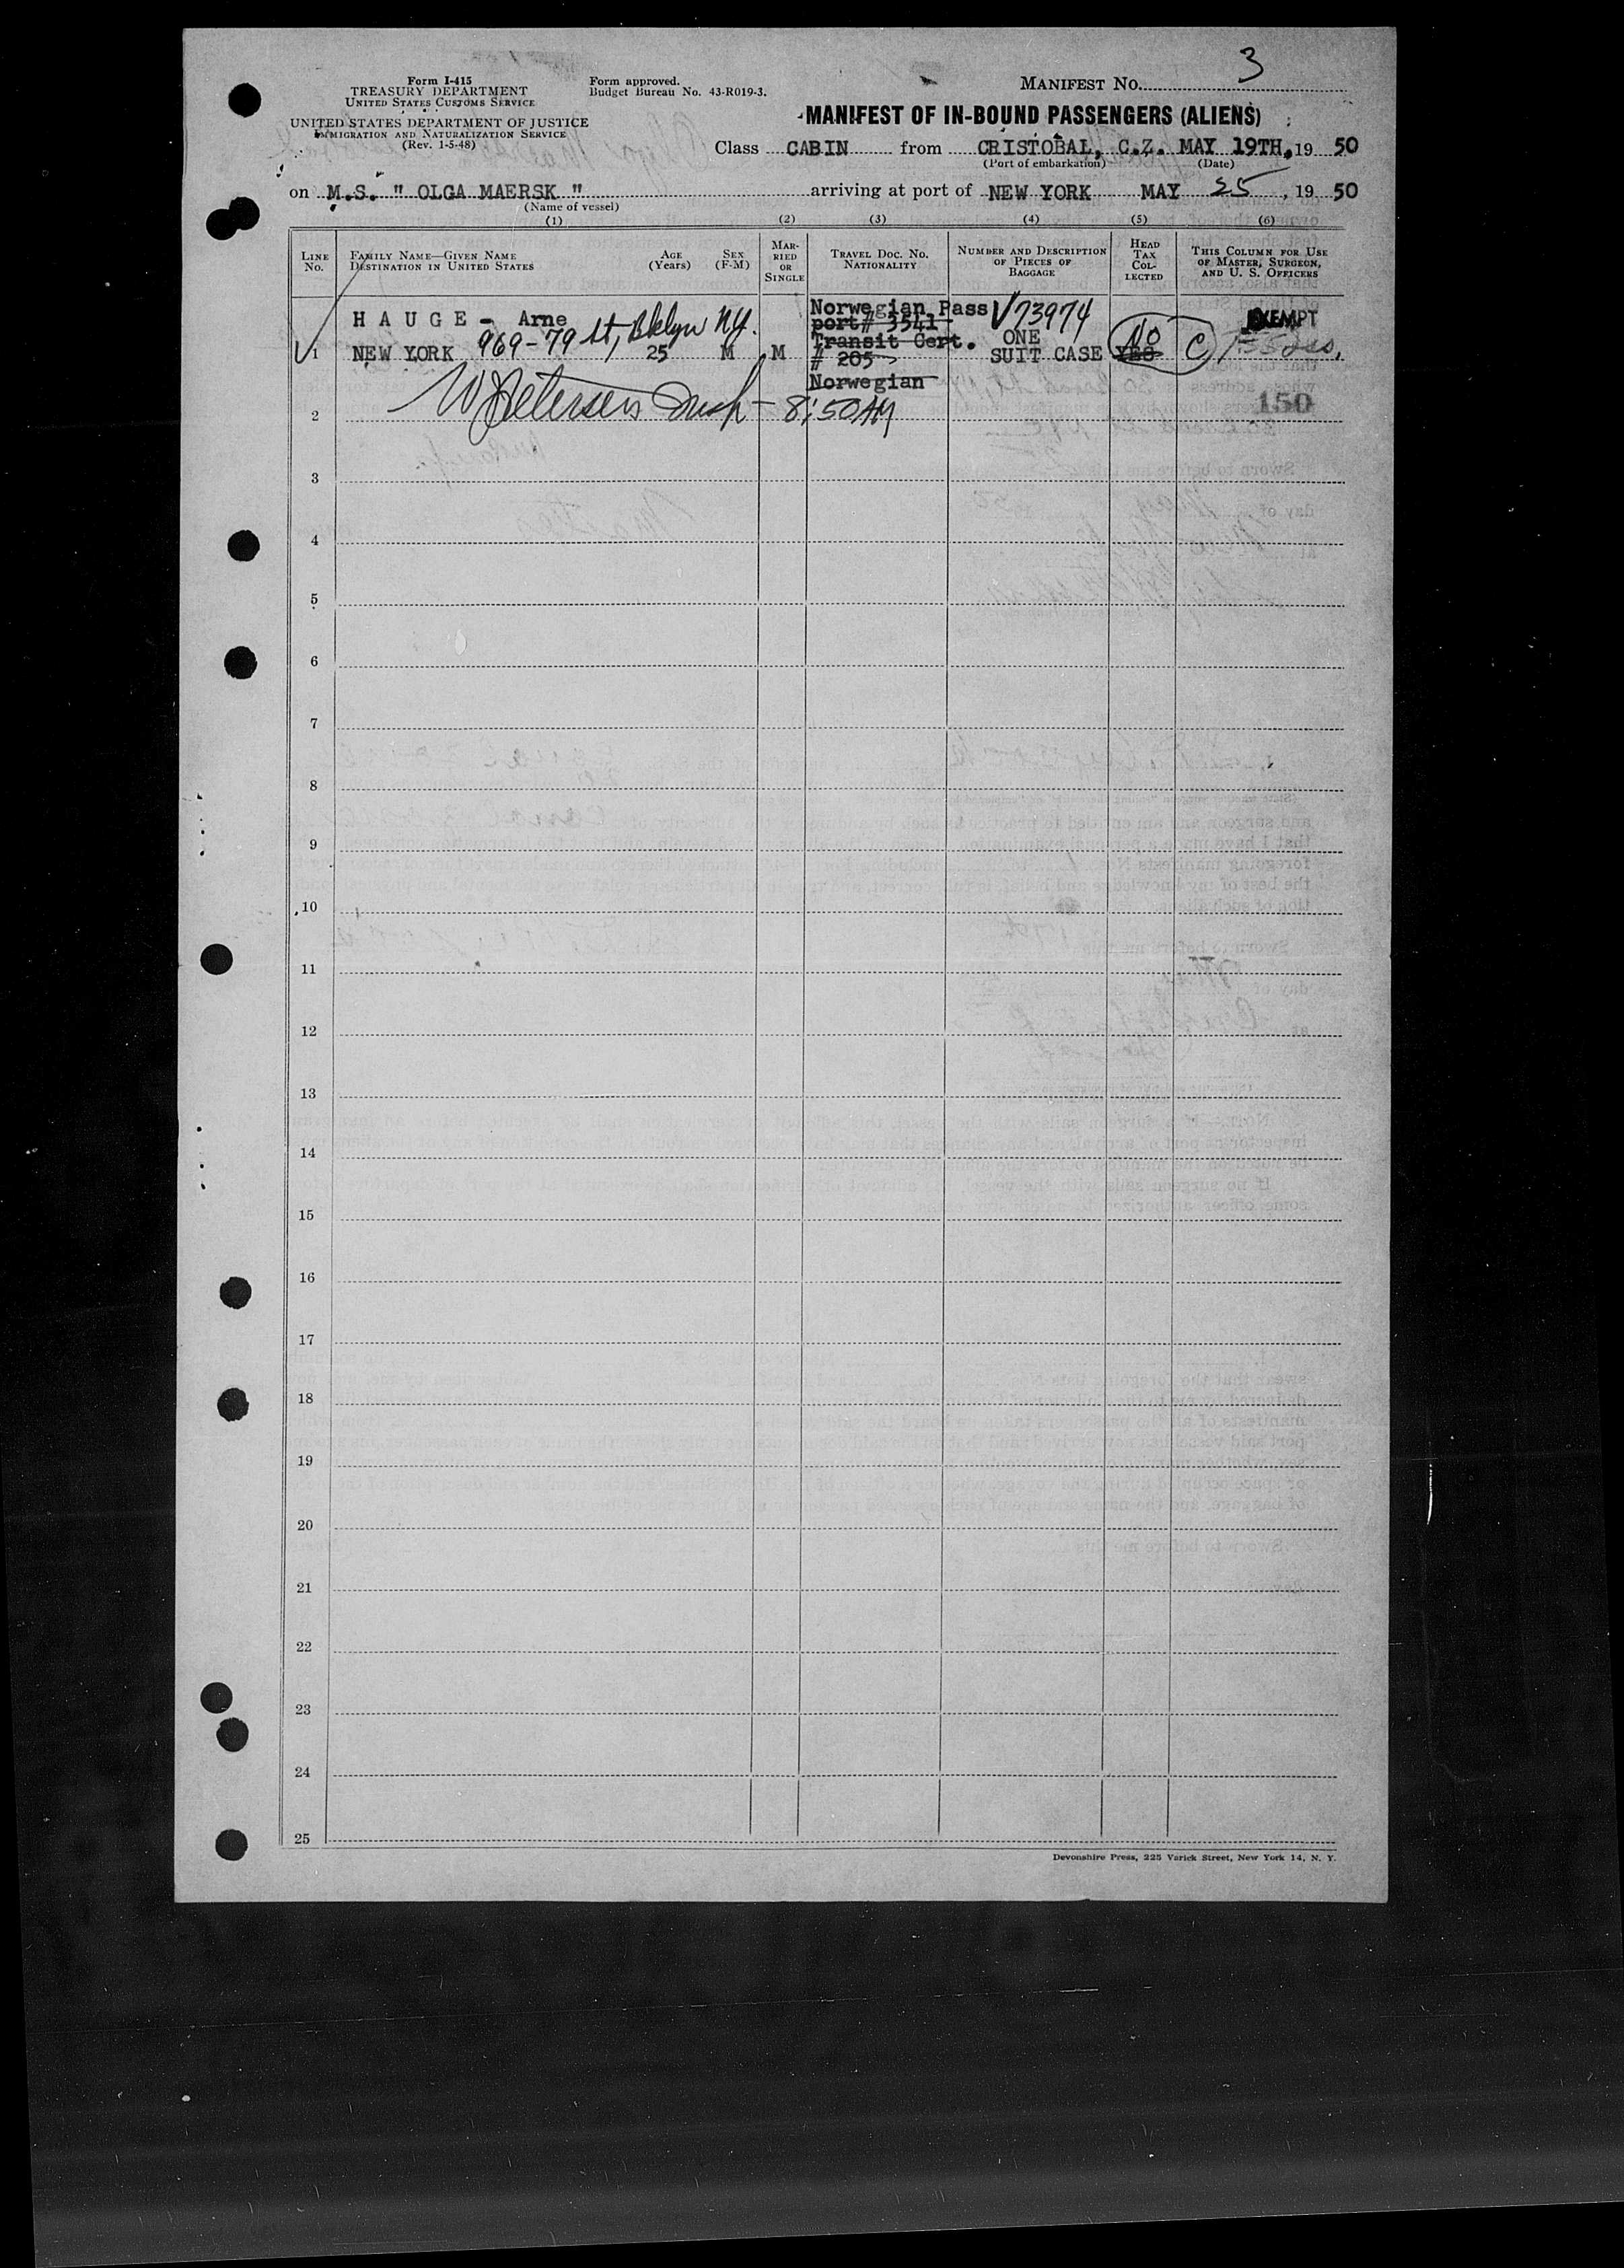 3
Form I-415
TREASURY DEPARTMENT
UNITED STATES CUSTOMS SERVICE
UNITED STATES DEPARTMENT OF JUSTICE
IMMIGRATION AND NATURALIZATION SERVICE
(Rev. 1-5-48)
Form approved.
Budget Bureau No. 43-R019-3.
MANIFEST NO.
MANIFEST OF IN-BOUND PASSENGERS (ALIENS)
Class CABIN from CRISTOBAL, C.Z. MAY 19TH, 19 50
(Port of embarkation) (Date)
on M.S. " OLGA MAERSK " arriving at port of NEW YORK MAY 25, 19 50
(Name of vessel)
(1) (2) (3) (4) (5) (6)
LINE NO.
FAMILY NAME—GIVEN NAME
DESTINATION IN UNITED STATES
AGE (Years)
SEX (F-M)
MARRIED OR SINGLE
TRAVEL DOC. NO. NATIONALITY
NUMBER AND DESCRIPTION OF PIECES OF BAGGAGE
HEAD TAX COLLECTED
THIS COLUMN FOR USE OF MASTER, SURGEON, AND U. S. OFFICERS
H A U G E - Arne
969-79 St, Bklyn NY.
1 NEW YORK 25 M M
Norwegian Pass
port# 3541
Transit Cert.
# 205
Norwegian
V73974
ONE
SUIT CASE
No
YES
C
EXEMPT
150
2
Petersen Insp - 8:50 AM
3
4
5
6
7
8
9
10
11
12
13
14
15
16
17
18
19
20
21
22
23
24
25
Devonshire Press, 225 Varick Street, New York 14, N. Y.